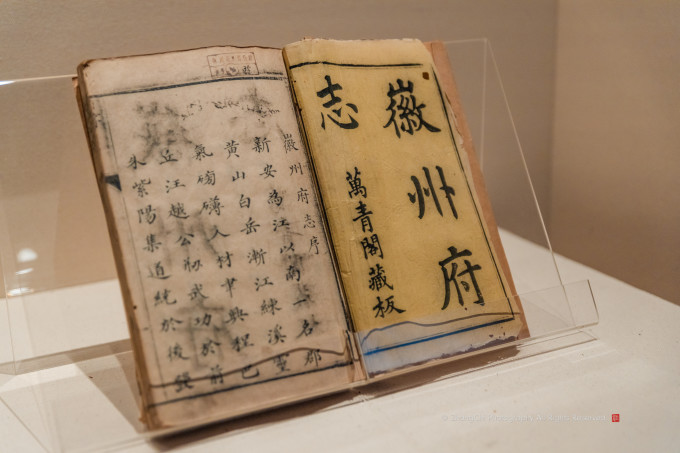 徽州府
志
萬青閣藏板
徽州府志序
新安為江以南一名郡
黃山白岳漸江練溪靈
氣磅礴人材聿興程巴
汪越公武功於前
朱紫陽集道統於後